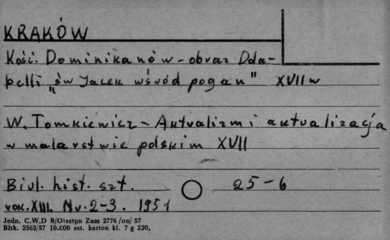 KRAKÓW
Kość. Dominikanów - obraz Dda-
belli "św Jacek wśród pogan" XVII w
W. Tomkiewicz - Aktualizm i aktualizacja
w malarstwie polskim XVII
Biul. hist. szt. 25-6
rok. XIII. Nr. 2-3. 1951
Jedn. C.W.D B/Olsztyn Zam 2776 /oz/ 57
Bltk. 2563/57 10.000 szt. karton kl. 7 g 220.